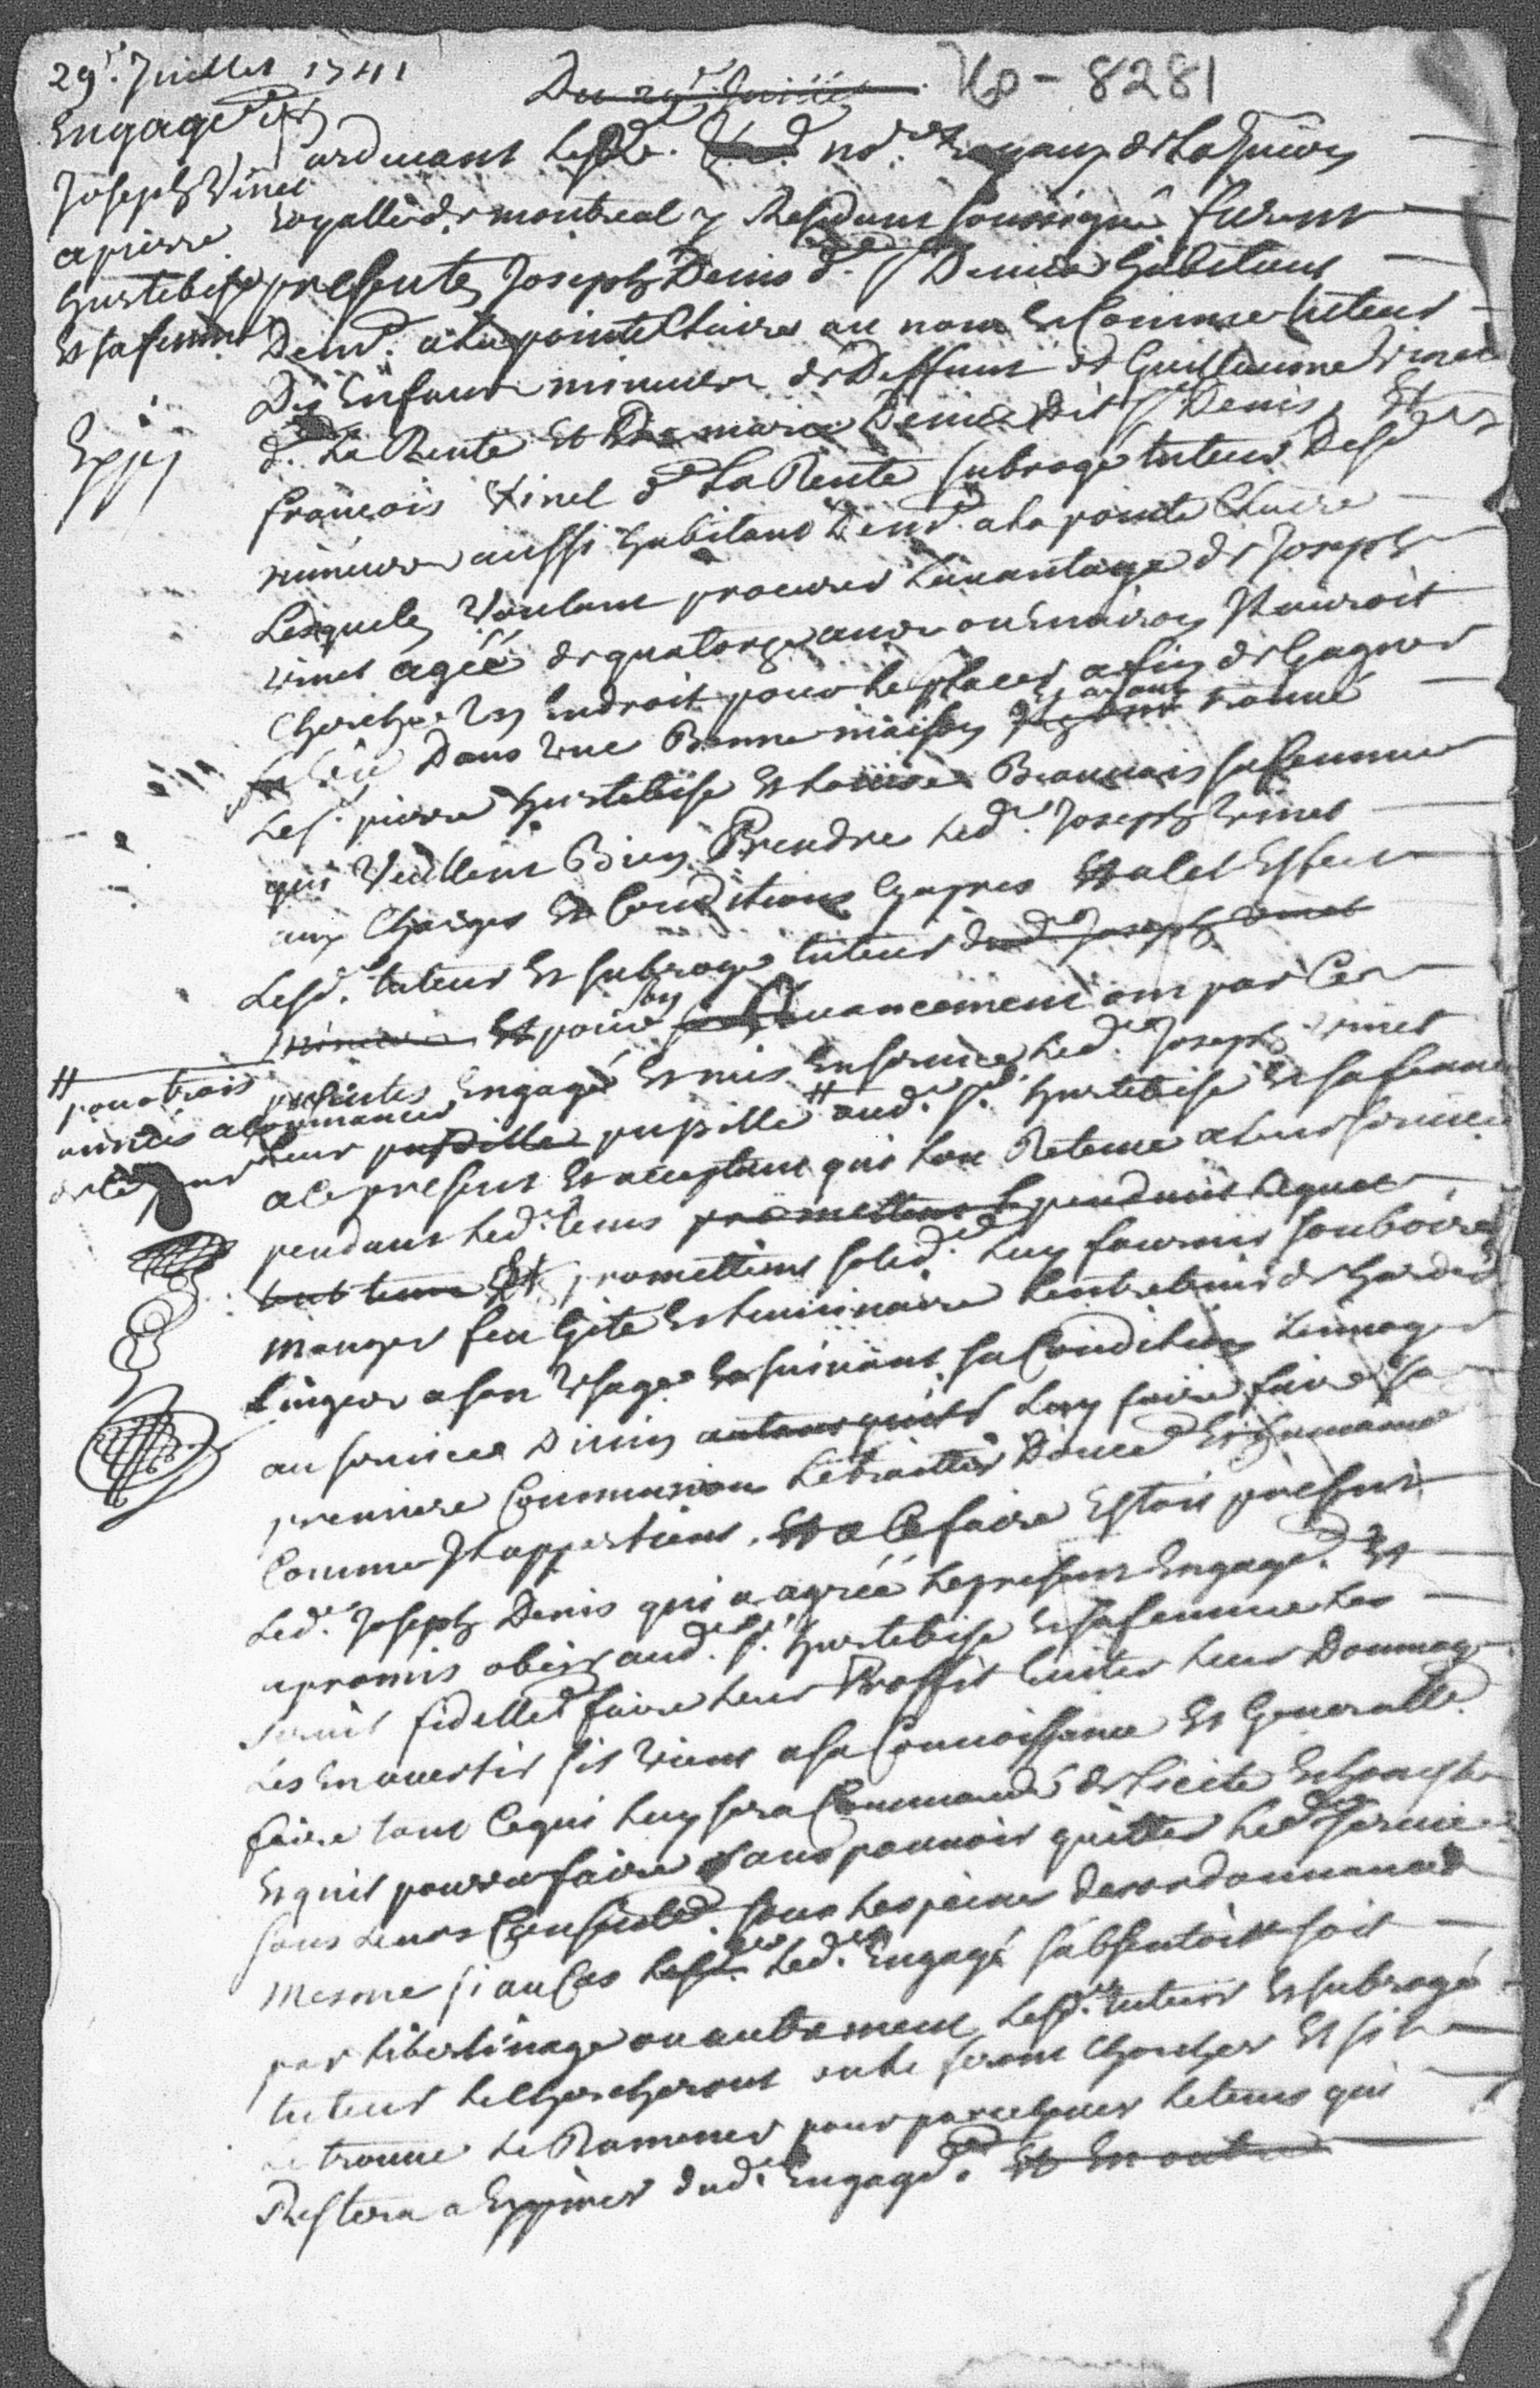 29e. Juillet 1741
No - 8281
Du 29e. Juillet
Engagemt
Joseph Vinet
a pierre
hurtebise
Et sa femme
Expié
Pardevant Les No.res Royaux de La Jurion
Royalle de montreal y Residans soussigné furent
presents Joseph Denis dt. St Denis habitant
Demt. a La pointe Claire au nom Et Comme tuteur
Des Enfans mineurs de Deffunt Guillaume Vinet
dt. La Rente Et marie Denis Dit St Denis, Et
francois Vinet dt La Rente subrogé tuteur Desd
mineurs aussi habitant Demt. a La pointe Claire
Lesquels Voulant procurer L'auantage de Joseph
vinet agéé de quatorze ans ou Enuiron Jl auroit
Cherché Un Endroit pour Le placer afin de Gagner
sa vie Dans une Bonne maison Et ayant trouué
Le sr. pierre hurtebise Et Louise Beauuais sa femme
qui Veullent Bien Prendre Led. Joseph Vinet
aux Charges Et Conditions Cy apres Et a Cet Effect
Lesd. tuteur Et subrogé tuteur dud Joseph Vinet
mineur Et pour son Auancement ont par Ces
presentes Engagé Et mis En seruice Led. Joseph Vinet
# pour trois
années a Commancer
de Ce jour
Leur pupille pupille # aud. Sr. hurtebise Et sa femme
a Ce present Et acceptant qui L'on Retenu a Leur seruice
pendant Led. tems promettent pendant Lequel
tout tems Et promettent solid. Luy fournir son boire
manger feu Gite Et Luminaire L'entretenir de hardes
Linges a son Usage Et suiuant sa Condition L'enuoyer
au seruice Diuin autant qu'il Luy faire faire sa
premiere Communion Le traitter Doucet Et humaint
Comme Jl appartient. Et a Ce faire Estoit present
Led. Joseph Denis qui a agréé Le present Engaget. Et
a promis obeir aud. Sr. hurtebise Et sa femme Les
seruir fidellet faire Leur Proffit Euiter Leur Dommage
Les En auertir s'il Vient a sa Connoissance Et Generallet
faire tout Ce qui Luy sera Commandé de Licite Et honeste
Et qu'il pourra faire sans pouuoir quitter Led. seruice
sans Leurs Consentet. sous Les peines des ordonnances
mesme si au Cas Led. Engagé s'absentoit soit
par Libertinage ou autrement Lesd. tuteur Et subrogé
tuteur Le Chercheront ou Le feront Chercher Et s'il
se trouue Le Ramener pour paracheuer Le tems qui
Restera a Expirer dud. Engaget. Et En outre